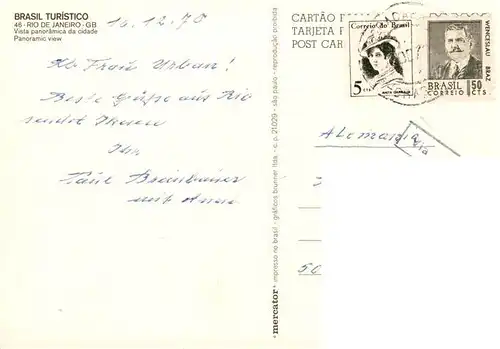 BRASIL TURÍSTICO
46 - RIO DE JANEIRO - GB
Vista panorâmica da cidade
Panoramic view
10.12.70
Lb. Frau Urban!
Beste Grüße aus Rio
sendet Ihnen
Ihr
Paul
mit Anne
"mercator" impresso no brasil - gráficos brunner ltda. - c.p. 21029 - são paulo - reprodução proibida
CARTÃO P
TARJETA P
POST CAR
Correio do Brasil
5 CTS
WENCESLAU BRAZ
BRASIL 50
CORREIO CTS
Alemanha
50